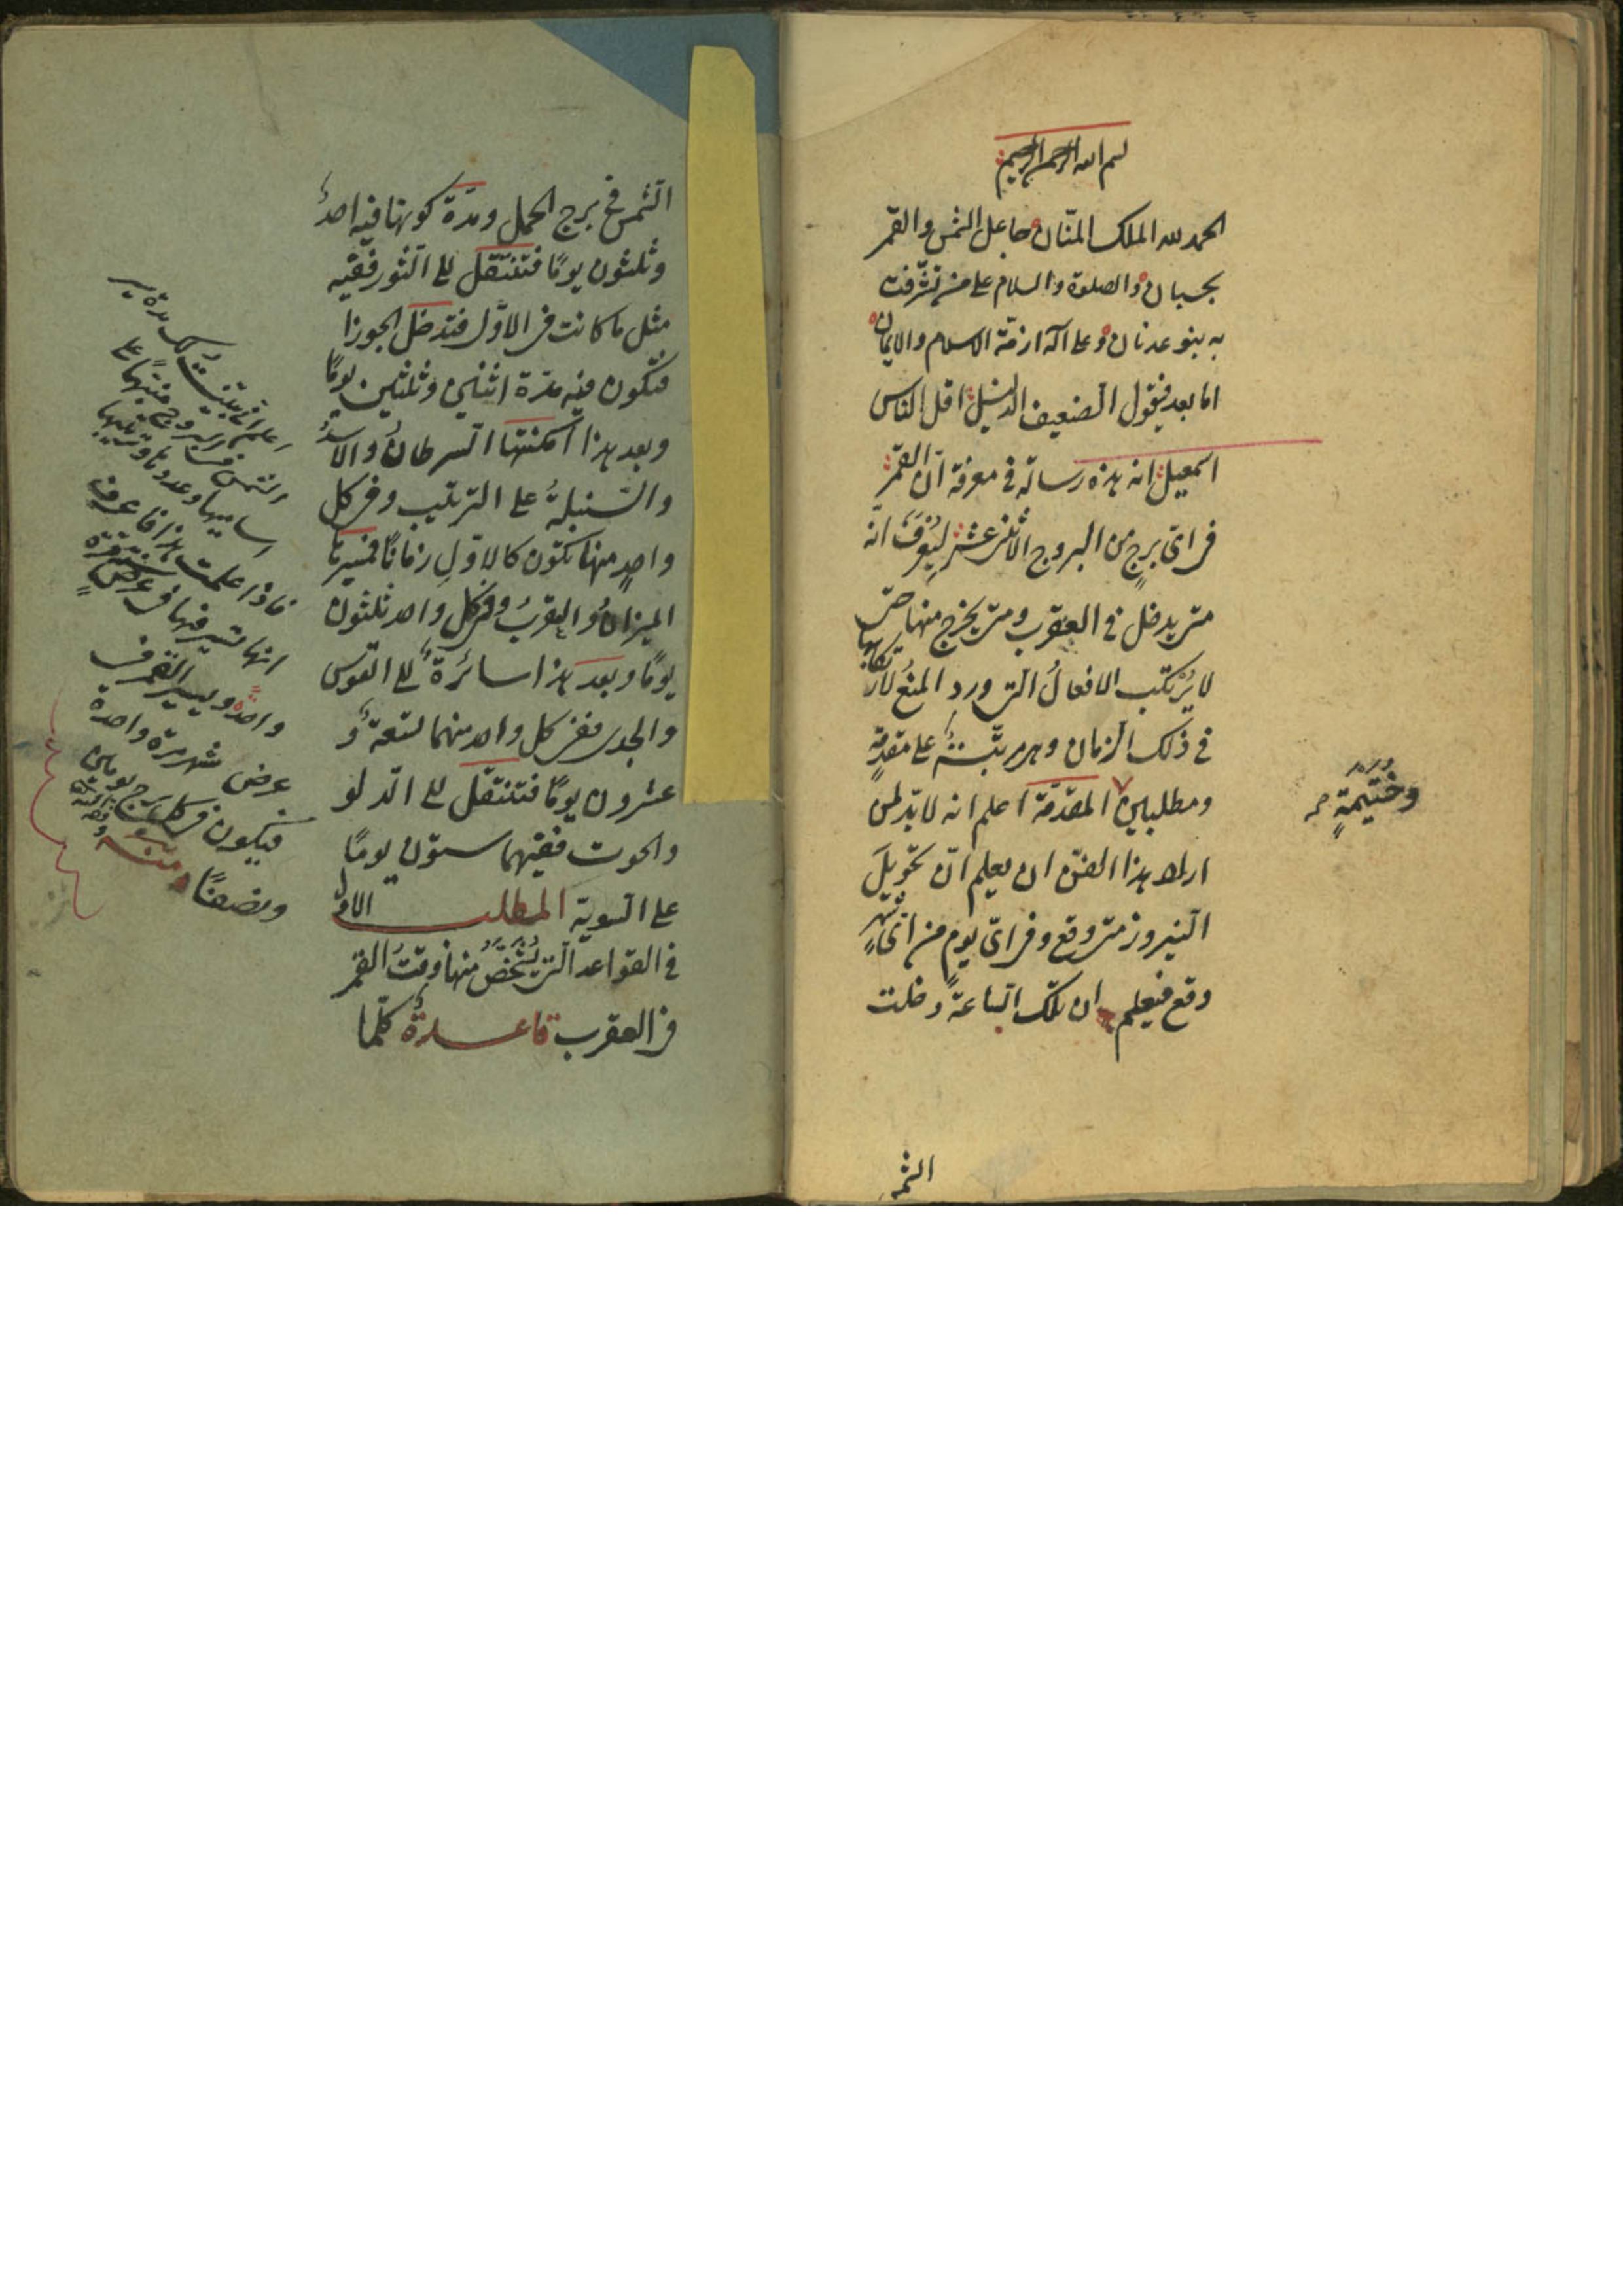 بسم الله الرحمن الرحيم
الحمد لله الملك المنّان جاعل الشمس والقمر
بحسبان والصلوة والسلام على من تشرّفت
به بنو عدنان وعلى آله ازمّة الاسلام والايمان
اما بعد فيقول الضعيف الذليل اقل الناس
اسمعيل انه هذه رسالة في معرفة انّ القمر
فى اىّ برجٍ من البروج الاثنى عشر ليُعرَفَ انّه
متى يدخل في العقرب ومتى يخرج منها حتى
لا يُرتكب الافعالُ التى ورد المنع لارتكابها
في ذلك الزمان وهى مرتّبةٌ على مقدمةٍ
ومطلبين
وختيمةٍ صح
المقدّمة اعلم انه لا بدّ لمن
اراد هذا الفنّ ان يعلم انّ تحويلَ
النيروز متى وقع وفى اىّ يومٍ من اىّ شهرٍ
وقع فيعلم ان تلك الساعة دخلت
الشمـ
الشمس في برج الحمل ومدّة كونها فيه احدٌ
وثلثون يومًا فتنتقل الى الثور ففيه
مثل ما كانت فى الاوّل فتدخل الجوزا
فتكون فيه مدّة اثنين وثلثين يومًا
وبعد هذا امكنتها السرطانُ والاسدُ
والسنبلةُ على الترتيب وفى كل
واحدٍ منها تكون كالاوّلِ زمانًا فمسيرها
الميزانُ والعقربُ وفى كل واحد ثلثون
يومًا وبعد هذا سائرةٌ الى القوس
والجدى ففى كل واحد منهما تسعةٌ و
عشرون يومًا فتنتقل الى الدلو
والحوت ففيهما ستون يومًا
على السوية المطلب الاول
في القواعد التى يُشَخَّصُ منها وقتُ القمر
فى العقرب قاعدةٌ كلّما
اعلم انى بيّنت لك مدّة سير
الشمس فى البروج منبّهًا على
اساميها وعددها وترتيبها
فاذا علمت هذا فاعرف
انها تسير فيها فى عرض سنة
واحدة ويسير القمر فى
عرض شهر مرّة واحدة
فيكون فى كل برج يومين
ونصفًا منه